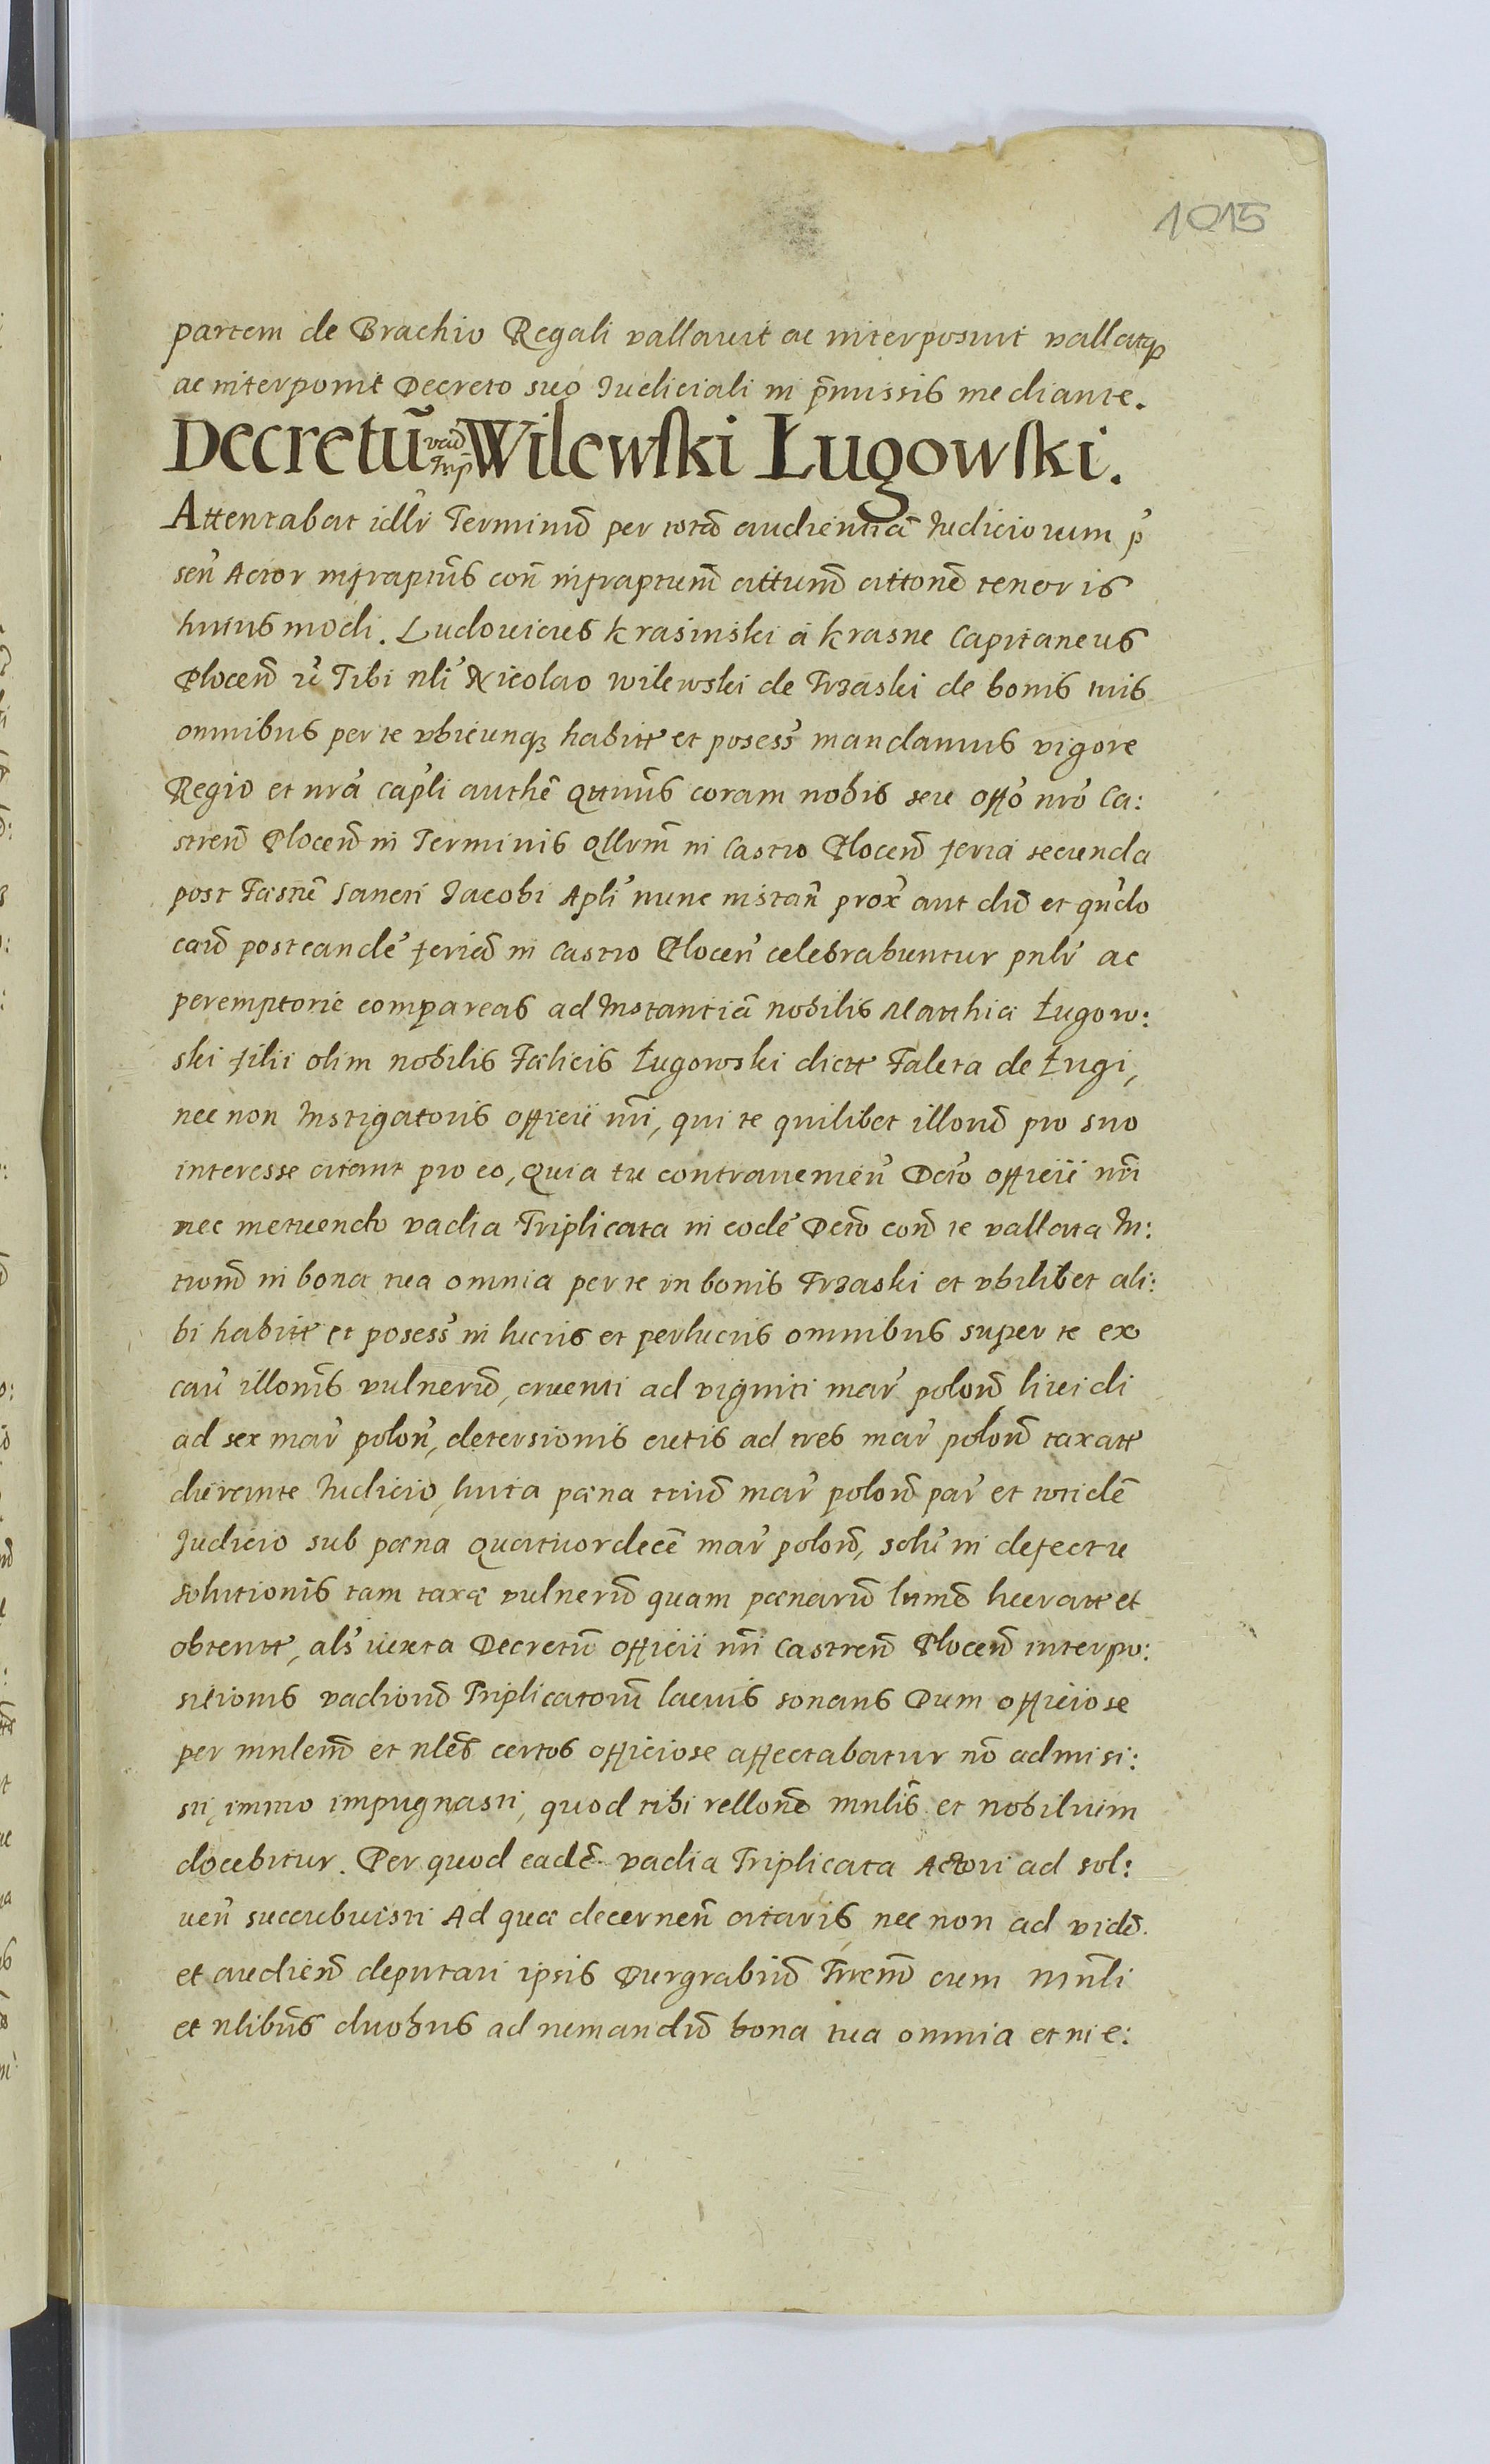 1015
partem de Brachio Regali vallavit ac interposuit vallatq
ac interponit Decreto suo Iudiciali in p̃missis mediante.
Decretũ vad Trip Wilewski Ługowski.
Attentabat idlr̃ Terminũ per totã audientiã Iudiciorum p̃
sen̄ Actor infraptũs con̄ infraptum̃ cittum̃ cittonẽ tenoris
huiusmodi. Ludovicus Krasinski á Krasne Capitaneus
Plocen̄ Tibi nli Nicolao Wilewski de Trzaski de bonis tuis
omnibus per te vbicunq habitt et posess mandamus vigore
Regio et nrá capli authẽ qttnũs coram nobis seu offo nro Ca:
stren̄ Plocen̄ in Terminis qllrm̃ in Castro Plocen̄ feria secunda
post Festũ Sancti Iacobi Apli nunc instan̄ prox aut dũ et qndo
caũ post eandẽ feriã in Castro Plocen̄ celebrabuntur pnlr ac
peremptorie compareas ad Instantiã nobilis Matthiæ Ługow:
ski filii olim nobilis Fælicis Ługowski dictt Faleta de Ługi,
nec non Instigatoris officii nri, qui te quilibet illorũ pro suo
interesse citant pro eo, quia tu contravenien̄ Dcro officii nri
nec metuendo vadia Triplicata in eodẽ Dcro con̄ te vallata In:
trom̃ in bona tua omnia per te in bonis Trzaski et vbilibet ali:
bi habitt et posess in lucris et perlucris omnibus super te ex
caũ illonis vulnerũ, cruenti ad viginti mar polon̄ lividi
ad sex mar polon̄, detersionis cutis ad tres mar polon̄ taxatt
dirimente Iudicio, luita pæna triũ mar polon̄ par et totidẽ
Iudicio sub pæna quatuordecẽ mar polon̄, solũ in defectu
solutionis tam taxæ vulnerũ quam pænarũ ltimẽ lucratt et
obtentt, als iuxta Decretũ officii nri Castren̄ Plocen̄ interpo:
sitionis vadiorũ Triplicatorũ lacuis sonans Dum officiose
per mnlem̃ et nles certos officiose affectabatur nõ admisi:
sti, immo impugnasti, quod tibi rellonẽ mnlis et nobilium
docebitur. Per quod eadẽ vadia Triplicata Actori ad sol:
uen̄ succubuisti Ad quæ decernen̄ citaris, nec non ad vidẽ
et audien̄ deputari ipsis Burgrabiũ Tnrem̃ cum Mnli
et nlibus duobus ad numandũ bona tua omnia et in e: